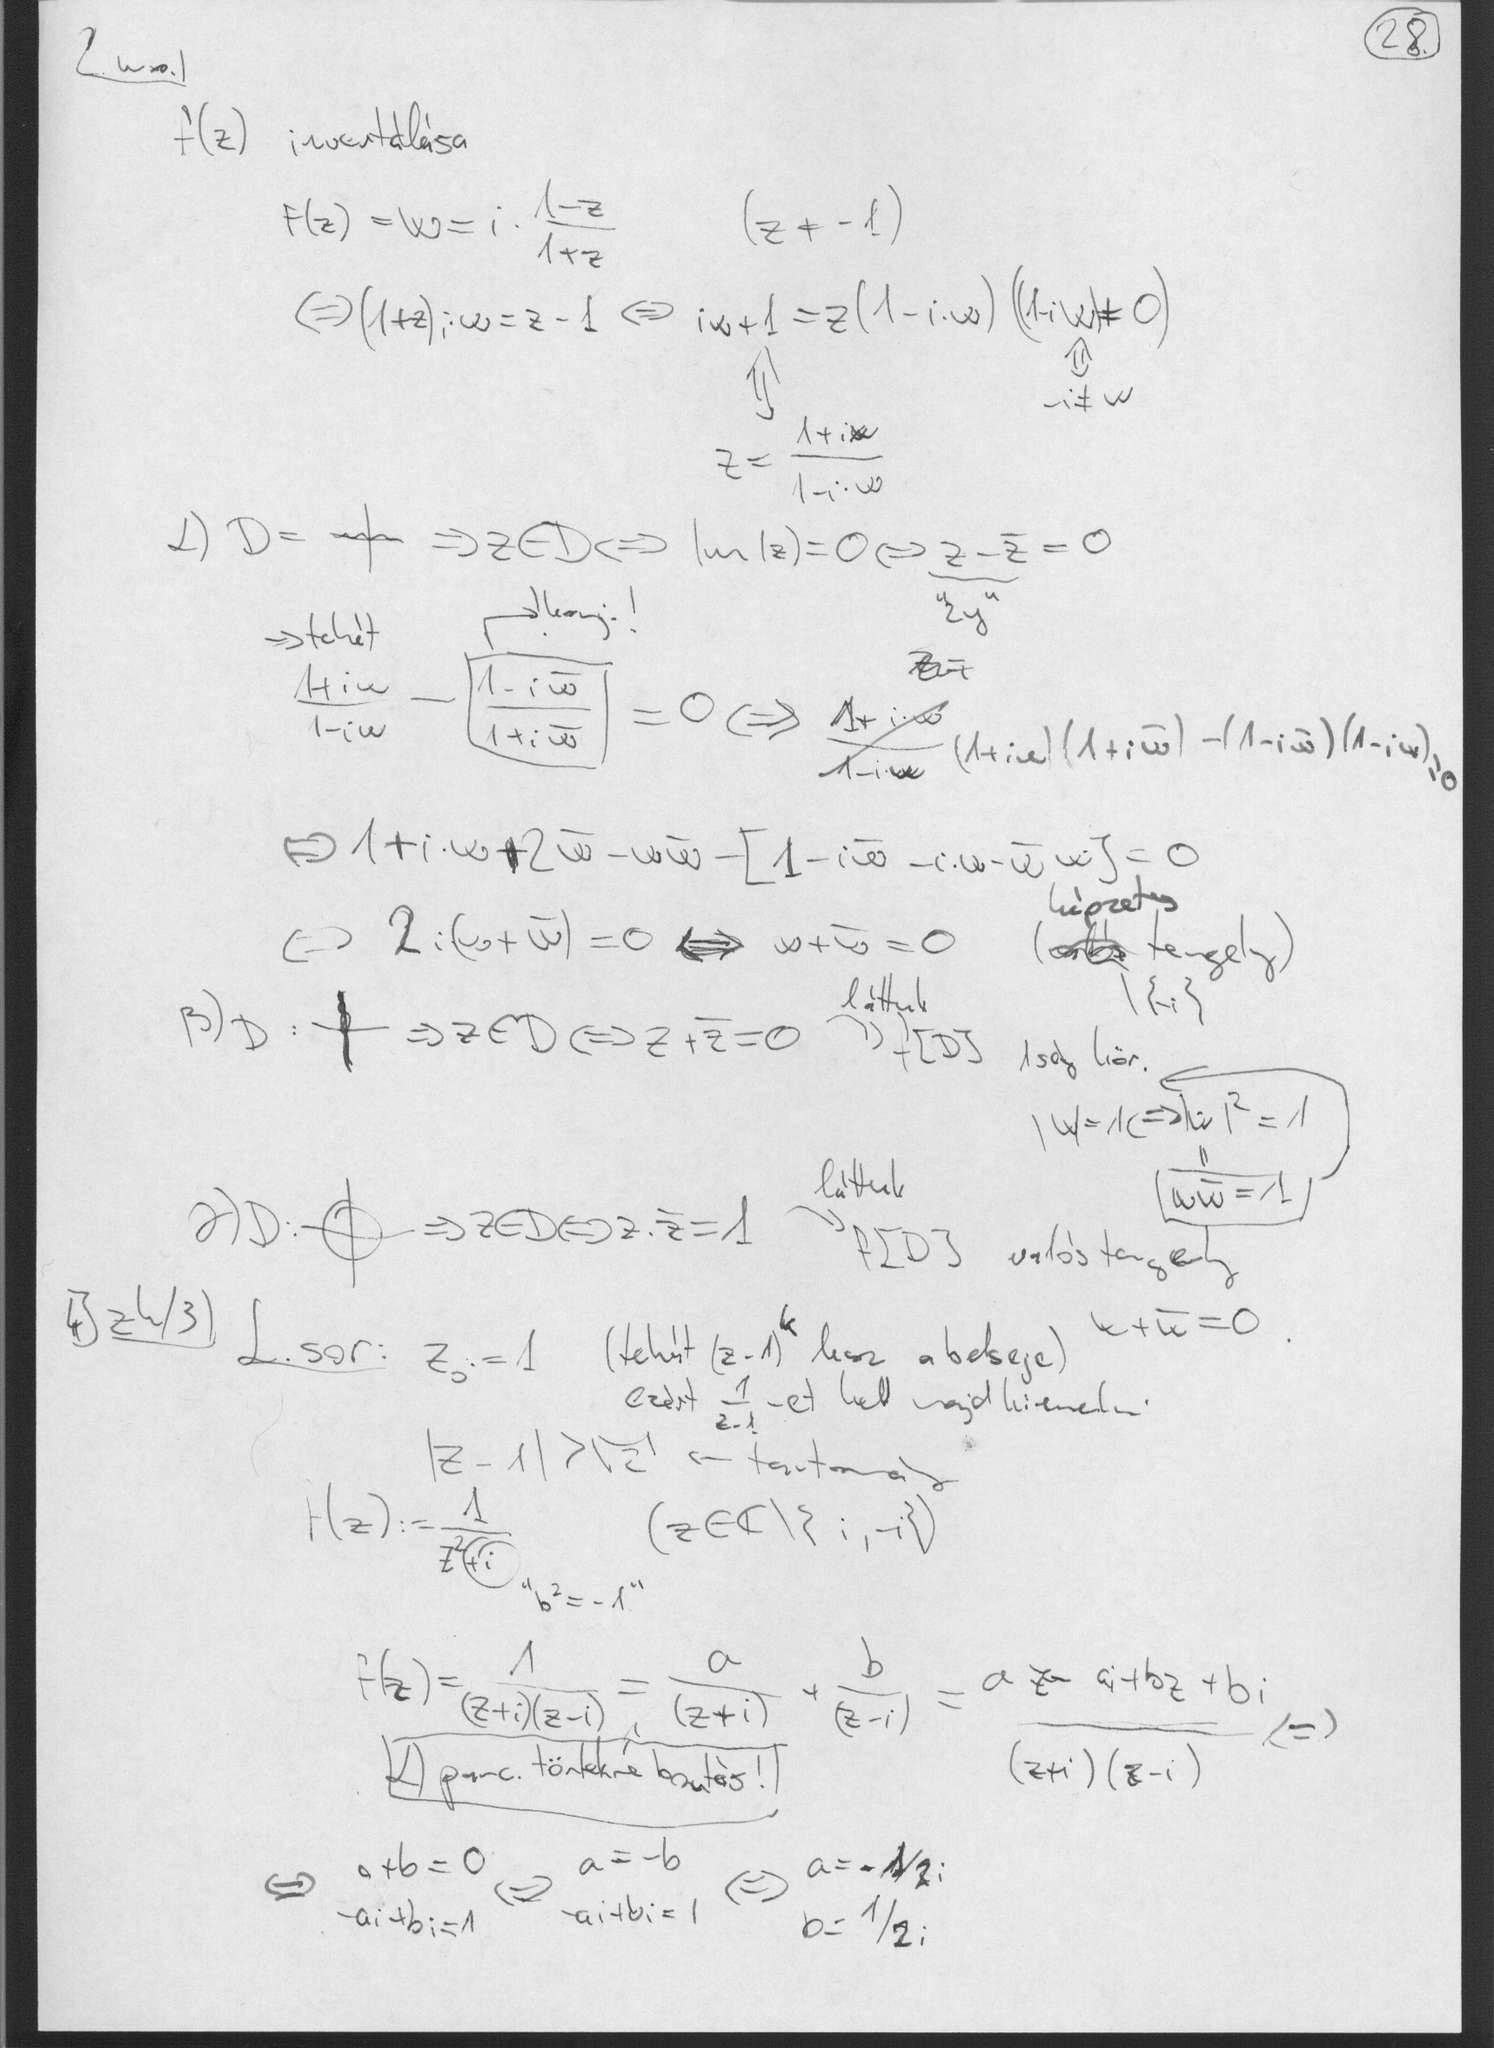 28.
f(z) invertálása
f(z) = w = i · (1-z)/(1+z) (z ≠ -1)
⇔ (1+z)i·w = z-1 ⇔ iw+1 = z(1-i·w) ((1-iw) ≠ 0)
⇕ ⇕
-i ≠ w
z = (1+iw)/(1-i·w)
α) D = ⇒ z∈D ⇔ Im(z) = 0 ⇔ z - z̄ = 0
"2y"
⇒ tehát konj.!
(1+iw)/(1-iw) - (1-iw̄)/(1+iw̄) = 0 ⇔ (1+iw)(1+iw̄) - (1-iw̄)(1-iw) = 0
⇔ 1+i·w+iw̄ - ww̄ - [1-iw̄ - i·w - w̄w] = 0
⇔ 2i(w+w̄) = 0 ⇔ w+w̄ = 0 (képzetes tengely)
\{-i}
β) D: ⇒ z∈D ⇔ z+z̄ = 0 láttuk f[D] 1ség kör.
|w|=1 ⇔ |w|² = 1
"
ww̄ = 1
γ) D: ⇒ z∈D ⇔ z·z̄ = 1 láttuk f[D] valós tengely
w+w̄ = 0.
zh/3) L.sor: z₀ := 1 (tehát (z-1)ᵏ lesz a belseje)
ezért 1/(z-1) -et kell majd kiemelni
|z-1| > √2 ← tartomány
f(z) := 1/(z²+i) (z∈ℂ\{i,-i})
"b² = -1"
f(z) = 1/((z+i)(z-i)) = a/(z+i) + b/(z-i) = (az - ai + bz + bi)/((z+i)(z-i)) ⇔
1) parc. törtekre bontás!
⇔ a+b = 0 ⇔ a = -b ⇔ a = -1/2i
-ai+bi = 1 -ai+bi = 1 b = 1/2i